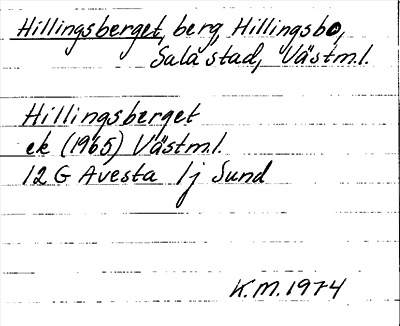 Hillingsberget, berg, Hillingsbo,
Sala stad, Västml.
Hillingsberget
ek (1965) Västml.
12 G Avesta 1j Sund
K.M. 1974